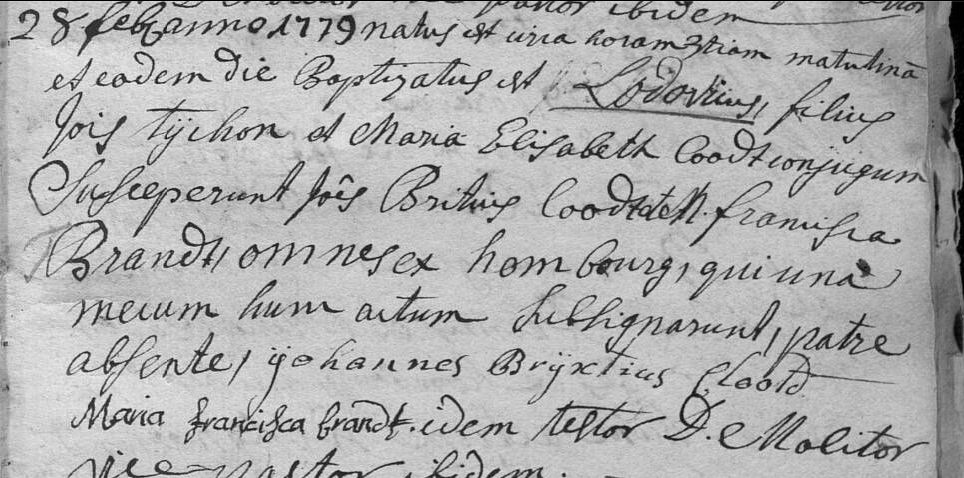 pastor ibidem
28 feb anno 1779 natus est circa horam 3tiam matutinã
et eadem die Baptizatus est Lodovicus, filius
Jois Tÿchon et Maria Elisabeth Cloodt conjugum
Susceperunt Joîs Britius Cloodt et M. francisca
Brandt, omnes ex hombourg, qui una
mecum hunc actum subsignarunt, patre
absente, ÿohannes Brÿxtius Clootd
Maria francisca brandt. idem testor D. Molitor
vice pastor ibidem.